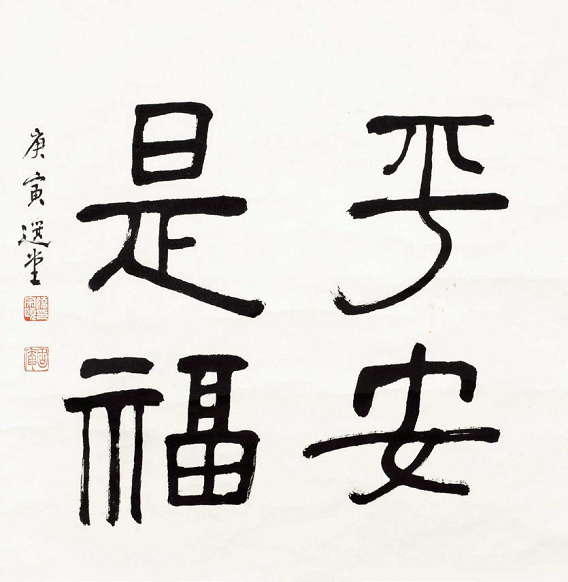 平安
是福
庚寅選堂